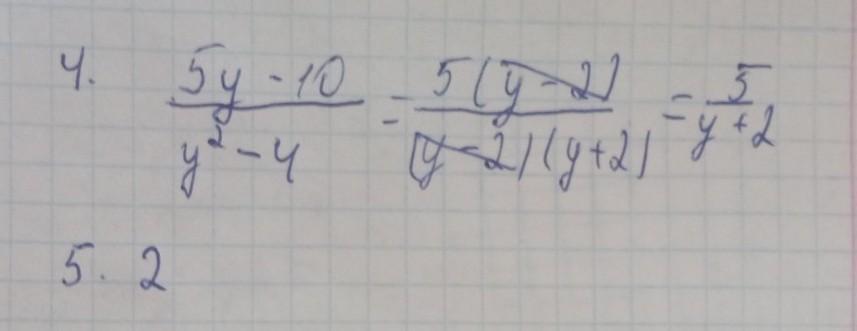 4. (5y - 10)/(y² - 4) = 5(y - 2)/((y - 2)(y + 2)) = 5/(y + 2)
5. 2